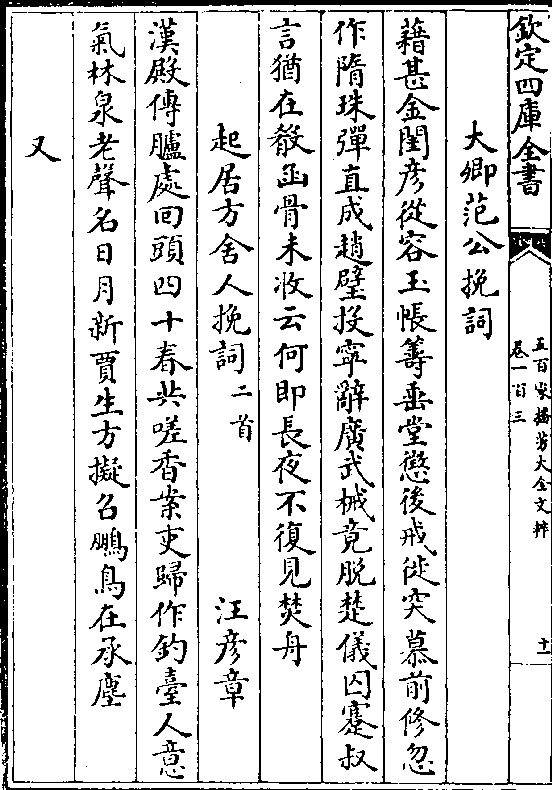 欽定四庫全書
五百家播芳大全文粹
卷一百三
十一
大卿范公挽詞
藉甚金閨彦從容玉帳籌垂堂懲後戒徙突慕前修忽
作隋珠彈直成趙璧投寧辭廣武械竟脱楚儀囚蹇叔
言猶在殽函骨未收云何即長夜不復見焚舟
起居方舍人挽詞二首 汪彦章
漢殿傳臚處回頭四十春共嗟香案吏歸作釣臺人意
氣林泉老聲名日月新賈生方擬召鵩鳥在承塵
又